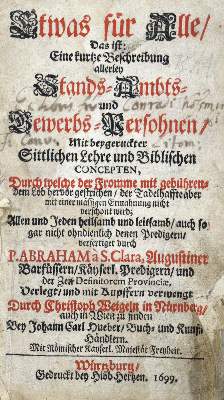 Etwas für Alle/
Das ist:
Eine kurtze Beschreibung
allerley
Stands- Ambts-
und
Gewerbs-Persohnen/
Mit beygeruckter
Sittlichen Lehre und Biblischen
CONCEPTEN,
Durch welche der Fromme mit gebühren-
dem Lob hervor gestrichen/ der Tadelhaffte aber
mit einer mässigen Ermahnung nicht
verschont wird;
Allen und Jeden heilsamb und leitsamb/ auch so-
gar nicht ohndienlich denen Predigern/
verfertiget durch
P. ABRAHAM à S. Clara, Augustiner
Barfüssern/ Käyserl. Predigern/ und
der Zeit Definitorem Provinciæ,
Verlegt/ und mit Kupffern vermengt
Durch Christoph Weigeln in Nürnberg/
auch in Wien zu finden
Bey Johann Carl Hueber/ Buch- und Kunst-
Händlern.
Mit Römischer Kayserl. Majestät Freyheit.
Würtzburg/
Gedruckt bey Hiob Hertzen. 1699.